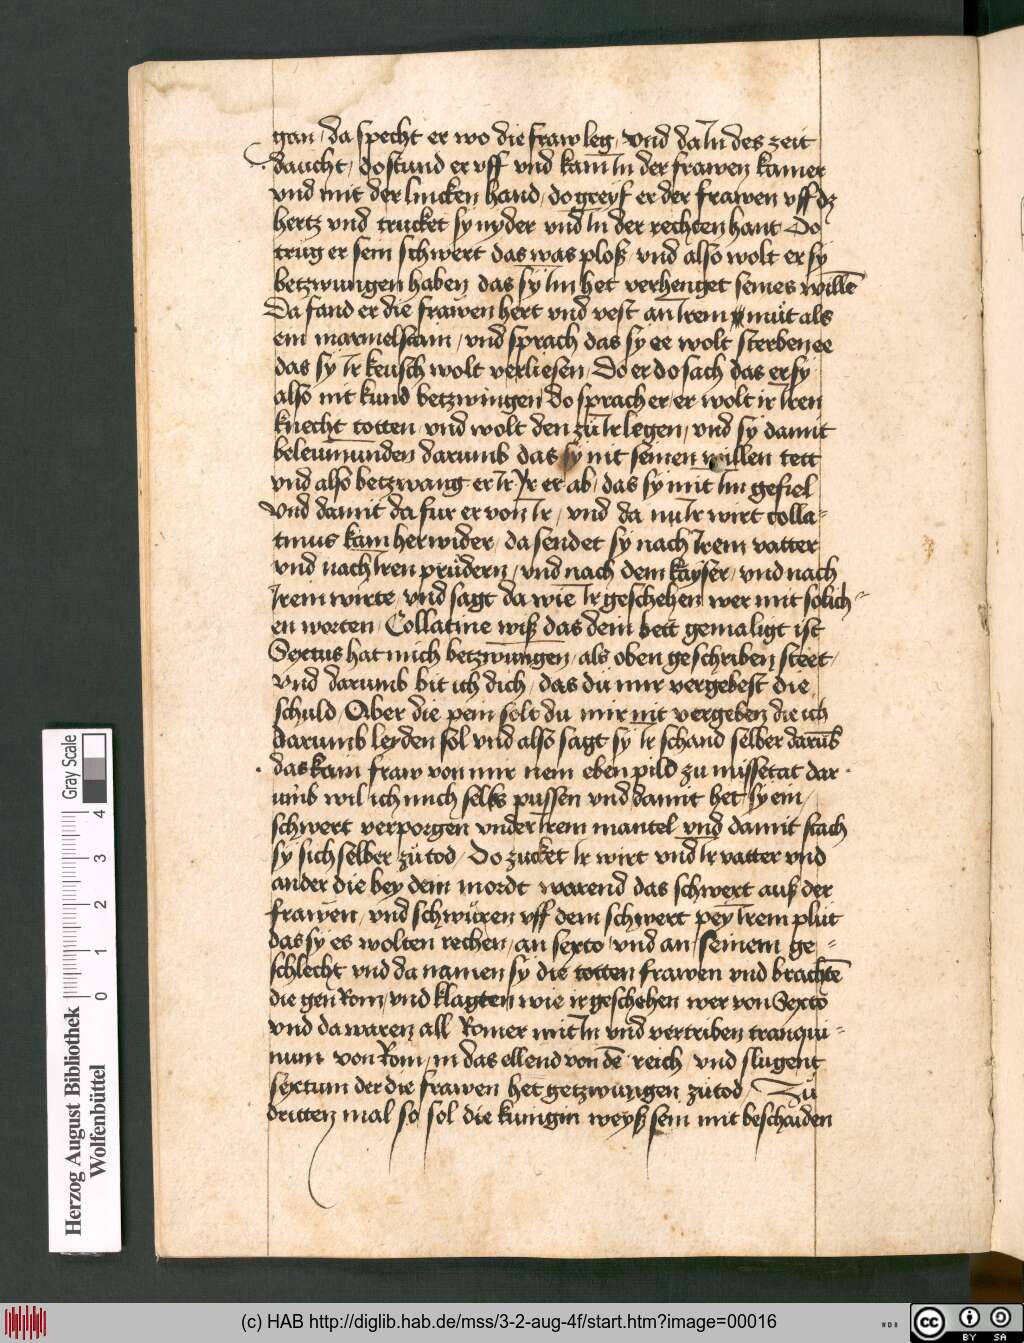 gan / da specht er wo die fraw leg / vnd da In des zeit
daucht / do stund er vff vnd kam In der frawen kamer
vnd mit der lincken hand / do greyf er der frawen vff dz
hertz vnd trucket sy nyder vnd In der rechten hant Do
trüg er sein schwert das was ploß / vnd also wolt er sy
betzwungen haben das sy Im het verhenget seines willē
Da fand er die frawen hert vnd vest an Irem müt als
ein marmelstain / vnd sprach das sy ee wolt sterben ee
das sy Ir keusch wolt verliesen / Do er do sach das er sy
also nit kund betzwingen Do sprach er / er wolt ir Iren
knecht totten / vnd wolt den zü Ir legen / vnd sy damit
beleumunden darumb das sy nit seinen willen tett
vnd also betzwang er Ir Ir er ab / das sy mit Im gefiel
Vnd damit da fur er von Ir / vnd da nu Ir wirt colla=
tinus kam herwider / da sendet sy nach Irem vatter
vnd nach Iren prüdern / vnd nach dem kayser / vnd nach
Irem wirte / vnd sagt da wie Ir geschehen wer mit solich=
en worten / Collatine wiß das dein bett gemaligt ist
Sextus hat mich betzwungen / als oben geschriben steet /
vnd darumb bit ich dich / das du mir vergebest die
schuld / Aber die pein solt du mir nit vergeben die ich
darumb leyden sol vnd also sagt sy Ir schand selber darūb
das kain fraw von mir nem eben pild zu missetat dar
umb wil ich mich selbs püssen vnd damit het sy ein /
schwert verporgen vnder Irem mantel vnd damit stach
sy sich selber zü tod / Do zucket Ir wirt vnd Ir vatter vnd
ander die bey dem mordt warend das schwert auß der
frawen / vnd schwüren vff dem schwert pey Irem plüt
das sy es wolten rechen / an sexto / vnd an seinem ge=
schlecht vnd da namen sy die totten frawen vnd brachtē
die gen Rom / vnd klagten wie ir geschehen wer von Sexto
vnd da waren all Romer mit In vnd vertriben tranqui=
num von Rom / in das ellend von dē reich vnd slugent
sextum der die frawen het getzwungen zu tod / Zu
dritten mal so sol die kunigin weyß sein mit beschaiden
Gray Scale
0 1 2 3 4
Herzog August Bibliothek
Wolfenbüttel
(c) HAB http://diglib.hab.de/mss/3-2-aug-4f/start.htm?image=00016
WDB
cc BY SA